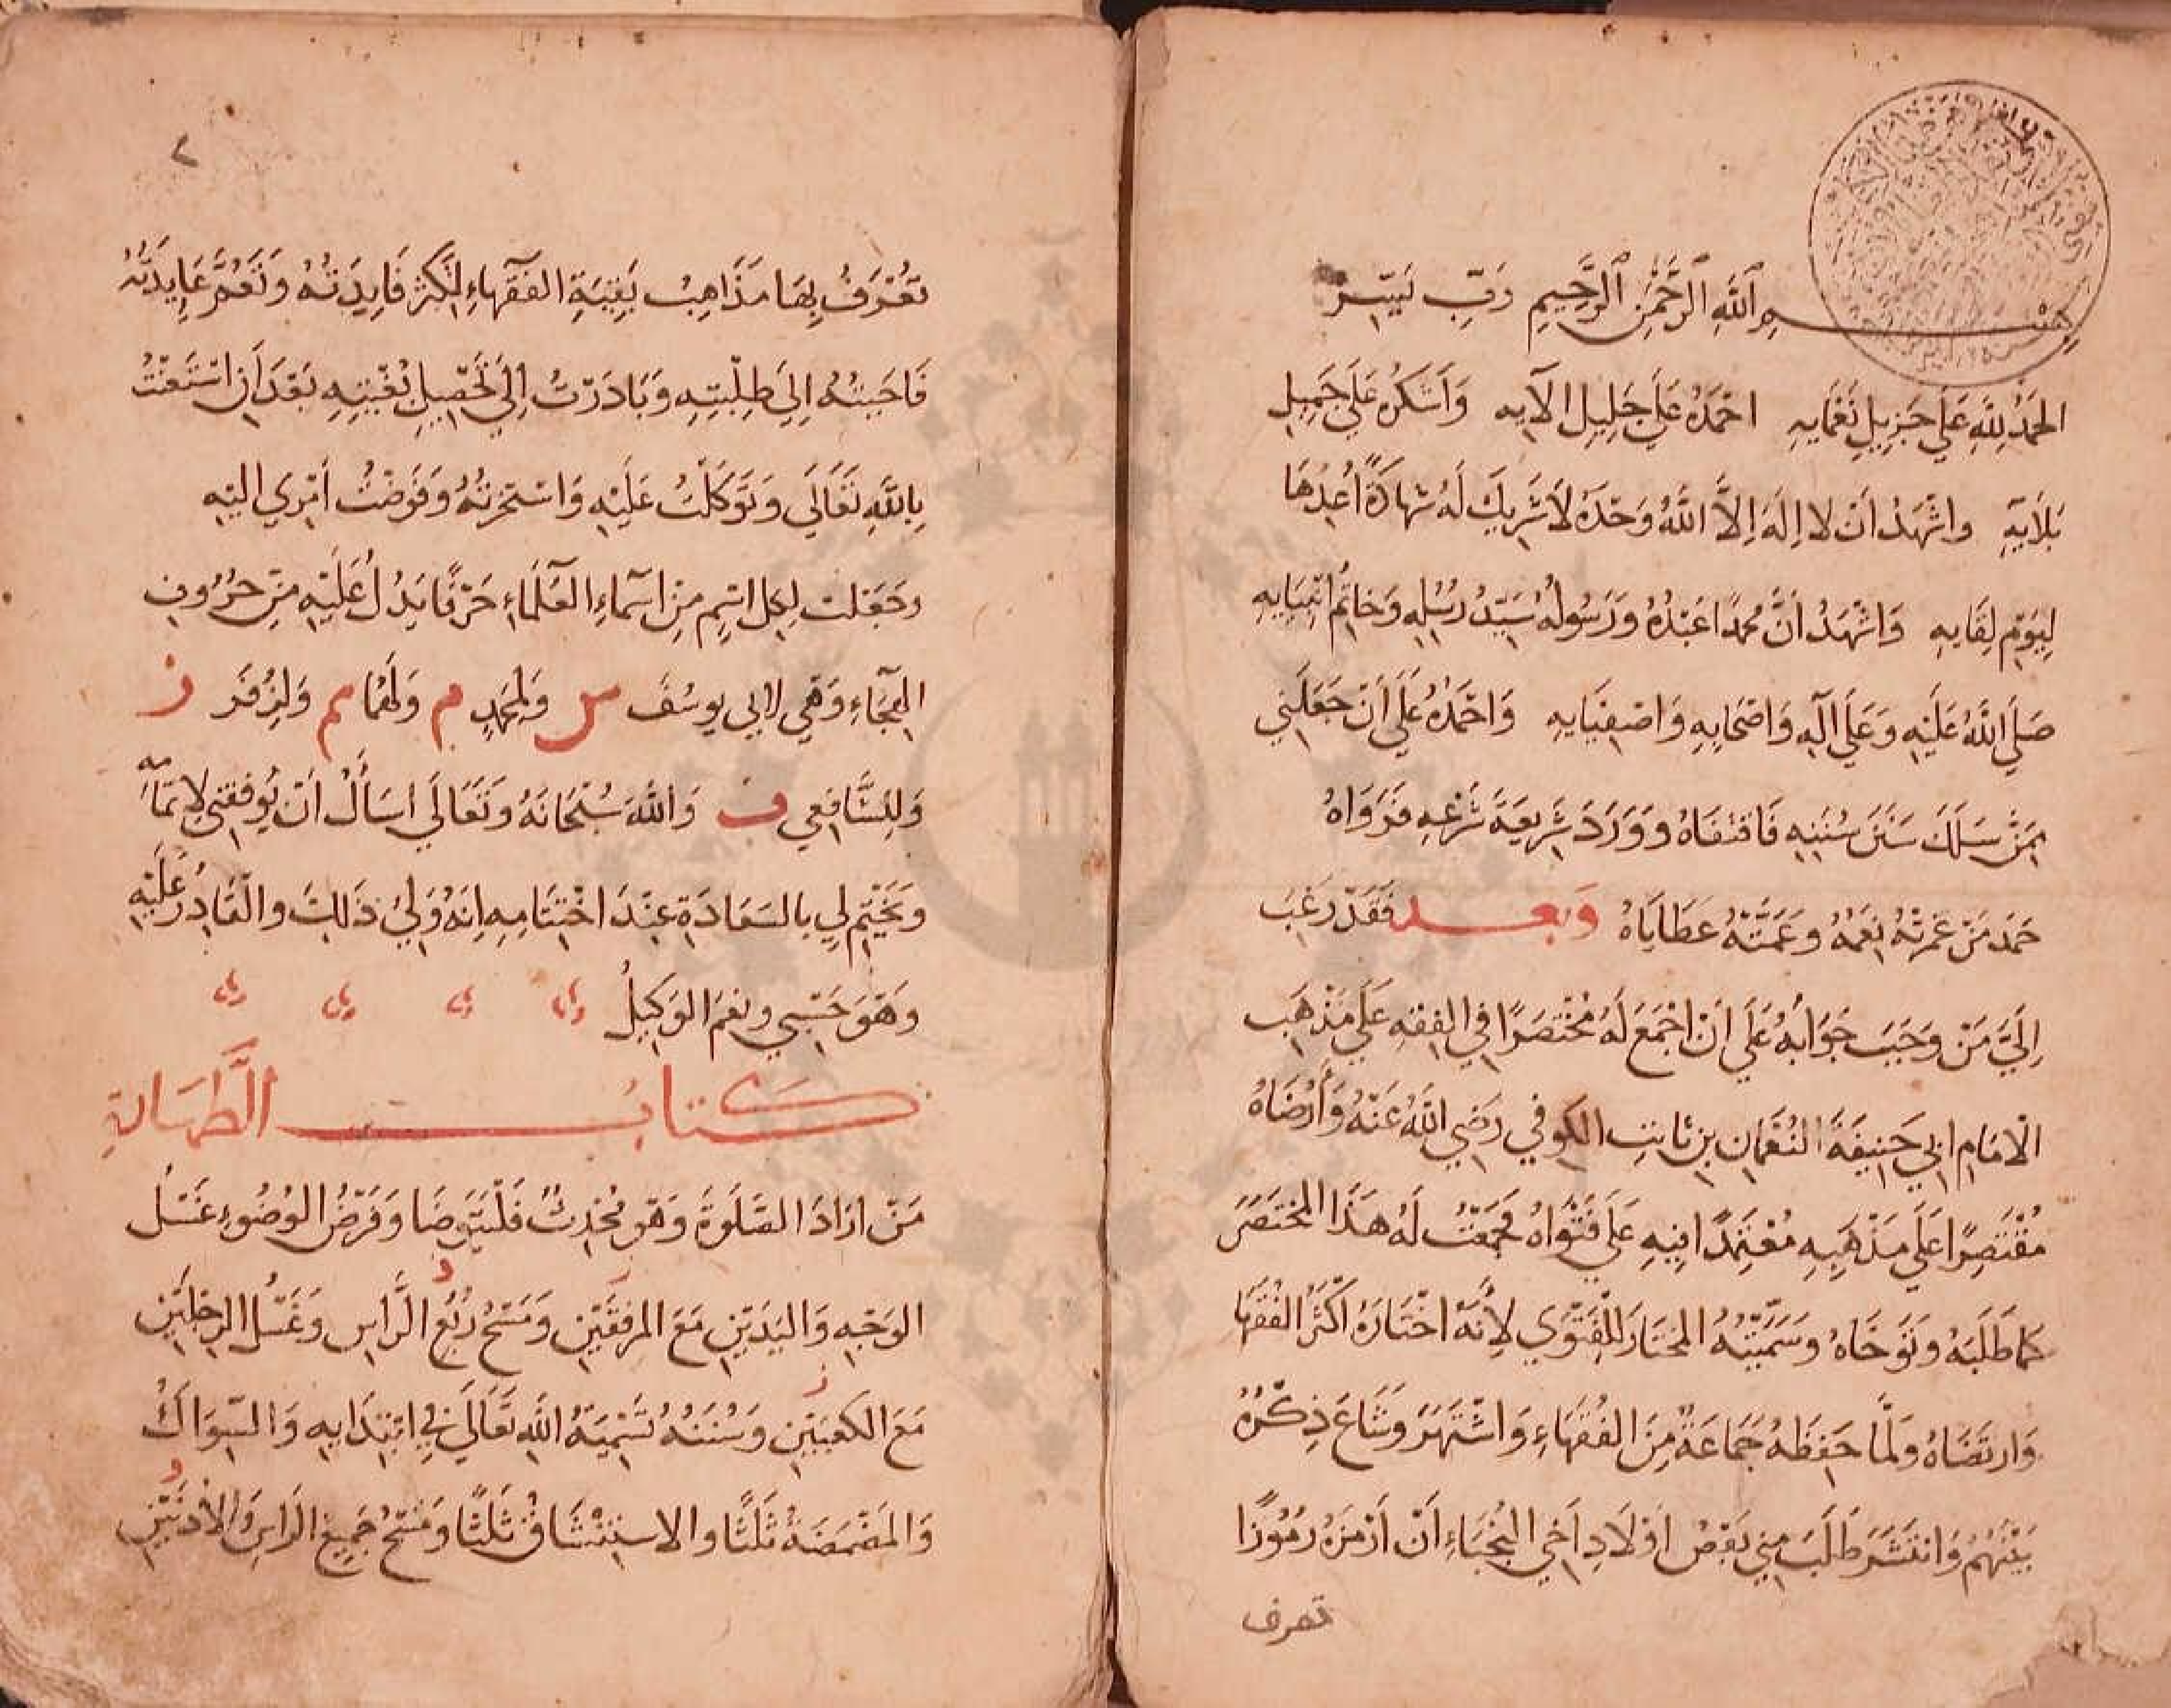 بِسْمِ ٱللَّهِ ٱلرَّحْمَٰنِ ٱلرَّحِيمِ رَبِّ يَسِّر
الحَمْدُ لِلَّهِ عَلَى جَزِيلِ نَعْمَايِهِ احْمَدُهُ عَلَى جَلِيلِ الآيِهِ وَأَشْكُرُهُ عَلَى جَمِيلِ
بَلَايِهِ واشْهَدُ أن لا اِلَهَ اِلاَّ اللَّهُ وَحْدَهُ لَا شَرِيكَ لَهُ شهَادَةً أُعِدُهَا
لِيَوْمِ لِقَايِهِ وَاشْهَدُ أنَّ مُحمدًا عَبْدُهُ وَرَسُولُهُ سَيّدُ رُسُلِهِ وَخَاتِمُ انْبِيَايِهِ
صَلَى اللَّهُ عَلَيْهِ وَعَلَى آلِهِ وَاصْحَابِهِ وَاصْفِيَايِهِ وَاحْمَدُهُ عَلَى أَنْ جَعَلَنِي
مِمَّنْ سَلَكَ سَنَنَ سُنَنِهِ فَاقْتَفَاهُ وَوَرَدَ شَرِيعَةَ شَرْعِهِ فَرَوَاهُ
حَمْدَ مَنْ غَمَرَتْهُ نِعَمُهُ وعَمَّتْهُ عَطَايَاهُ وَبعـد فَقَدْ رَغِبَ
اِلَيَّ مَنْ وَجَبَ جَوَابُهُ عَلَى أنْ اجْمَعَ لَهُ مُخْتَصَرًا فِي الفِقهِ عَلَى مَذْهَبِ
الْامَامِ ابِي حَنِيفَةَ النُعْمَانِ بنِ ثَابتِ الكوفي رَضِي اللَّهُ عَنْهُ وَأَرْضَاهُ
مُقْتَصِرًا عَلَى مَذْهَبِهِ مُعْتَمِدًا فِيهِ عَلَى فَتْوَاهُ فَجَمَعْتُ لَهُ هَذَا المخْتَصَرَ
كمَا طَلَبَهُ وتَوَخَاهُ وسَمَّيْتُهُ المختَارَ لِلْفَتْوَى لِأَنَّهُ اخْتَارَهُ اَكْثَرُ الفُقَهَا
وَارتَضَاهُ ولَمَّا حَفِظَهُ جَمَاعَةٌ مِنَ الفُقَهَاءِ وَاشْتَهَرَ وشَاعَ ذِكْرُهُ
بَيْنَهُمْ وَانتَشَرَ طَلَبَ مِنِي بَعْضُ اوْلَادِ اَخِي النُجَبَاءِ اَنْ اَرْمِزَهُ رُمُوزًا
تعرف
٢
تُعْرَفُ بِهَا مَذَاهِبُ بَقِيَةِ الفُقَهَاءِ لِتَكثرَ فَايِدَتُهُ وَتَعُمَّ عَايِدَتُهُ
فَاجَبْتُهُ اِلَى طِلْبَتِهِ وَبَادَرْتُ اِلَى تَحْصِيلِ بُغْيَتِهِ بَعْدَ اَن اسْتَعَنْتُ
بِاللَّهِ تَعَالَى وَتَوَكَلْتُ عَلَيْهِ وَاسْتَخَرْتُهُ وَفَوَضْتُ اَمْرِي اليْهِ
وجَعَلتُ لِكلِ اسْمٍ مِنْ اسَمَاءِ العُلَمَاءِ حَرْفًا يَدُلُ عَلَيْهِ مِنْ حُرُوفِ
الهِجَاءِ وَهِيَ لابي يوسُفَ س وَلِمُحَمدٍ م وَلَهُمَا سم وَلِزُفَرَ ز
وَلِلشَّافِعي ف وَاللَّهَ سُبْحَانَهُ وَتَعَالَى أسَأَلُ أنْ يُوَفِقَنِي لاتمَامِهِ
وَيَخْتِمَ لِي بالسَعَادَةِ عِنْدَ اخْتِتَامِهِ اِنَهُ وَلِيُ ذَلِكَ والْقَادِرُ عَلَيْهِ
وَهَوَ حَسْبِي ونِعْمَ الوَكِيلُ
كـتابُ الطَّهَارَةِ
مَنْ ارَادَ الصَلَوةَ وَهُوَ مُحْدِثٌ فَلْيَتَوضَا وَفَرْضُ الوُضُوءِ غَسْلُ
الوَجْهِ وَاليَدَيْنِ مَعَ المرفَقَيْنِ وَمَسْحُ رُبْعِ الرَّاسِ وَغَسْلُ الرِجْلَيْنِ
مَعَ الكَعْبَيْنِ وَسُنَنُهُ تَسْمِيَةُ اللَّهِ تَعَالَى فِي ابْتِدَايِهِ وَالسّوَاكُ
وَالمَضْمَضَةُ ثَلَثًا والاسْتِنْشَاقُ ثَلثًا وَمَسْحُ جَمِيعِ الرَاسِ وَالأُذنَيْنِ